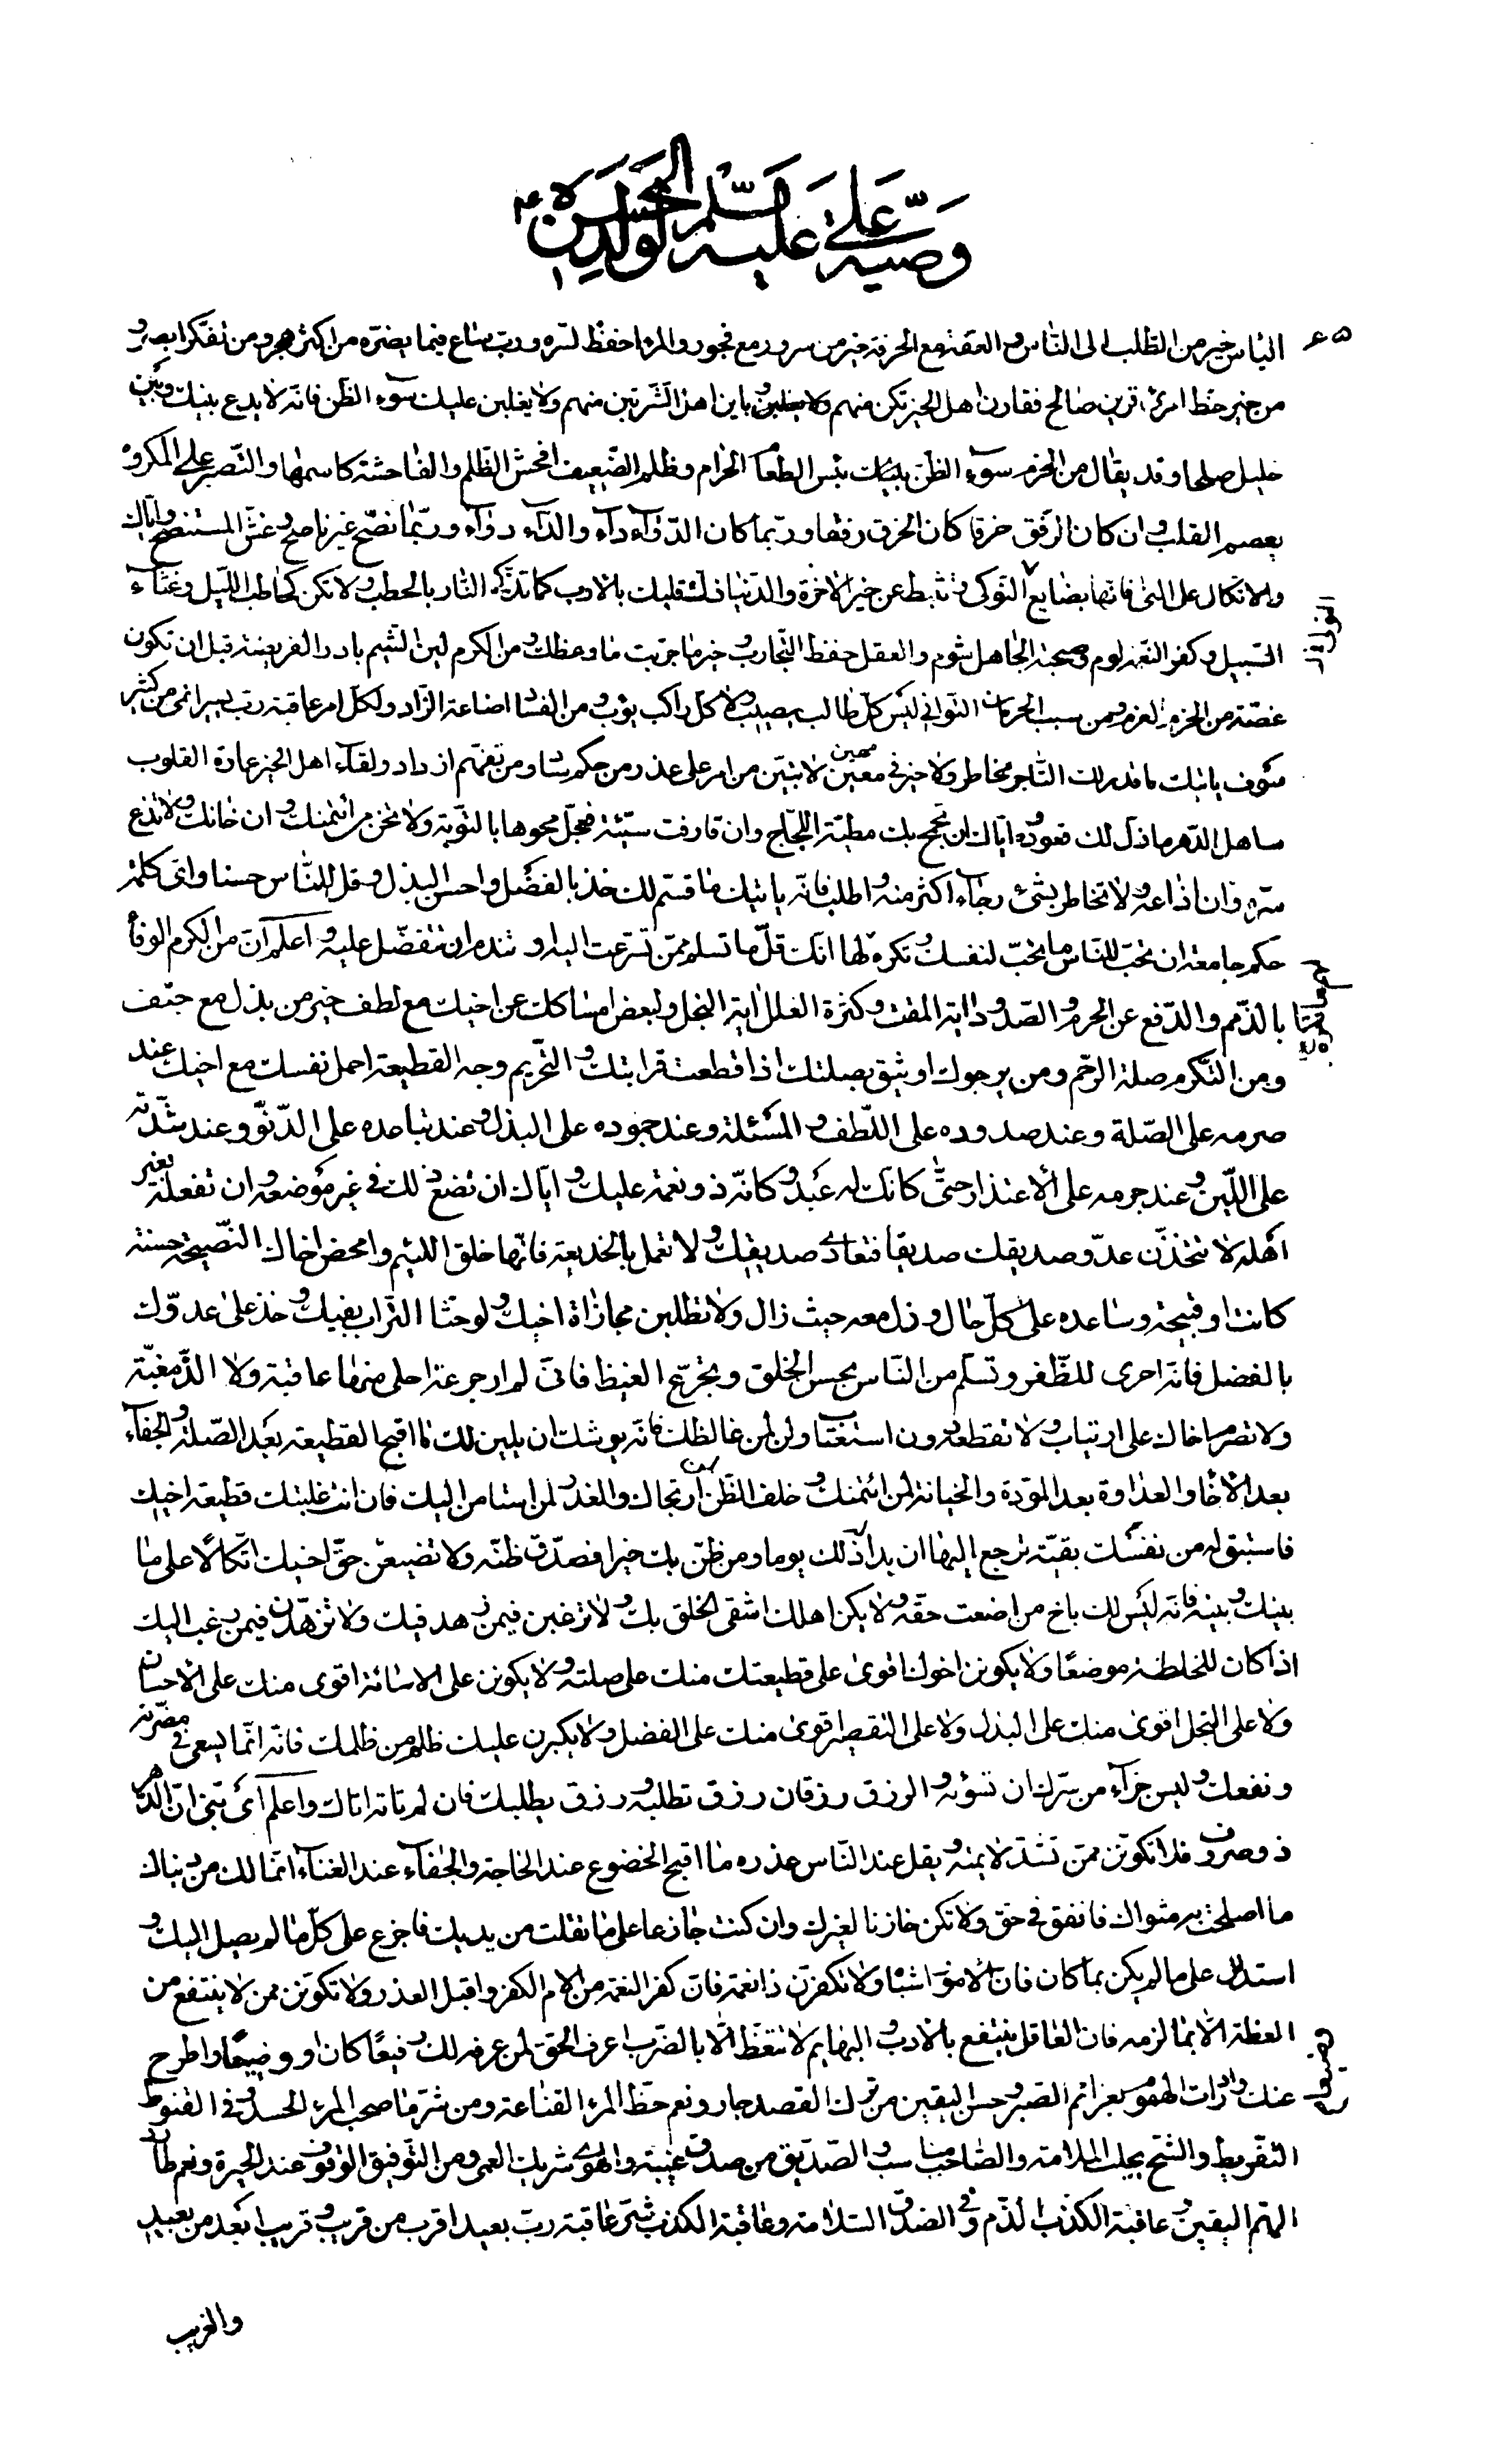 وصية علي عليه السلم لولده الحسن ع
٤٥
الياس خير من الطلب الى الناس و العفة مع الحرفة خير من سرور مع فجور والمرء احفظ لسره ورب ساع فيما يضره من اكثر هجر ومن تفكر ابصر و
من خير حظ امرئ قرين صالح فقارن اهل الخير تكن منهم وباين اهل الشر تبن منهم ولا يغلبن عليك سوء الظن فانه لا يدع بينك وبين
خليل صلحا وقد يقال من الحزم سوء الظن بئس الطعام الحرام وظلم الضعيف افحش الظلم والفاحشة كاسمها والتصبر على المكروه
يعصم القلب و ان كان الرفق خرقا كان الخرق رفقا وربما كان الدواء داء والداء دواء وربما نصح غير ناصح و غش المستنصح واياك
والاتكال على المنى فانها بضايع النوكى و تثبط عن خير الاخرة والدنيا ذك قلبك بالادب كما تذكى النار بالحطب و لا تكن كحاطب الليل وغثاء
السيل وكفر النعم لوم و صحبة الجاهل شوم والعقل حفظ التجارب و خير ما جربت ما وعظك و من الكرم لين الشيم بادر الفريضة قبل ان تكون
غصة من الحزم العزم و من سبب الحرمان التواني ليس كل طالب يصيب ولا كل راكب يؤب و من الفساد اضاعة الزاد ولكل امر عاقبة رب يسير انمى من كثير
سوف ياتيك ما قدر لك التاجر مخاطر ولا خير في معين مهين لا تبيتن من امر على عذر من حكم ساد ومن تفهم ازداد ولقاء اهل الخير عمارة القلوب
ساهل الدهر ما ذل لك قعوده و اياك ان تجمح بك مطية اللجاج وان قارفت سيئة فعجل محوها بالتوبة ولا تخن من ائتمنك و ان خانك ولا تذع
سره و ان اذاعه و لا تخاطر بشئ رجاء اكثر منه و اطلب فانه ياتيك ما قسم لك خذ بالفضل واحسن البذل و قل للناس حسنا واى كلمة
حكم جامعة ان تحب للناس ما تحب لنفسك و تكره لها انك قل ما تسلم ممن تسرعت اليه او تندم ان تتفضل عليه و اعلم ان من الكرم الوفاء
بالذمم والدفع عن الحرم و الصدود اية المقت وكثرة العلل اية البخل ولبعض امساكك عن اخيك مع لطف خير من بذل مع جنف
ومن التكرم صلة الرحم ومن يرجوك او يثق بصلتك اذا قطعت قرابتك و التحريم وجه القطيعة احمل نفسك مع اخيك عند
صرمه على الصلة وعند صدوده على اللطف و المسئلة وعند جموده على البذل و عند تباعده على الدنو و عند شدته
على اللين و عند جرمه على الاعتذار حتى كانك له عبد و كانه ذو نعمة عليك و اياك ان تضع ذلك في غير موضعه و ان تفعله بغير
اهله لا تتخذن عدو صديقك صديقا فتعادي صديقك و لا تعمل بالخديعة فانها خلق اللئيم وامحض اخاك النصيحة حسنة
كانت او قبيحة وساعده على كل حال و زل معه حيث زال ولا تطلبن مجازاة اخيك و لو حثا التراب بفيك و خذ على عدوك
بالفضل فانه احرى للظفر وتسلم من الناس بحسن الخلق وتجرع الغيظ فانى لم ار جرعة احلى منها عاقبة ولا الذ مغبة
ولا تصرم اخاك على ارتياب و لا تقطعه دون استعتاب و لن لمن غالظك فانه يوشك ان يلين لك ما اقبح القطيعة بعد الصلة و الجفاء
بعد الاخاء و العداوة بعد المودة والخيانة لمن ائتمنك و خلف الظن لمن ارتجاك والغدر لمن استامن اليك فان انت غلبتك قطيعة اخيك
فاستبق له من نفسك بقية يرجع اليها ان بدا ذلك يوما ومن ظن بك خيرا فصدق ظنه ولا تضيعن حق اخيك اتكالا على ما
بينك و بينه فانه ليس لك باخ من اضعت حقه و لا يكن اهلك اشقى الخلق بك و لا ترغبن فيمن زهد فيك ولا تزهدن فيمن رغب اليك
اذا كان للخلطة موضعا ولا يكونن اخوك اقوى على قطيعتك منك على صلته و لا يكونن على الاسائة اقوى منك على الاحسان
ولا على البخل اقوى منك على البذل ولا على التقصير اقوى منك على الفضل ولا يكبرن عليك ظلم من ظلمك فانه انما يسعى في مضرته
ونفعك و ليس جزاء من سرك ان تسوئه و الرزق رزقان رزق تطلبه و رزق يطلبك فان لم تاته اتاك واعلم اى بنى ان الدهر
ذو صروف فلا تكونن ممن تشتد لايمته و يقل عند الناس عذره ما اقبح الخضوع عند الحاجة و الجفاء عند الغناء انما لك من دنياك
ما اصلحت به مثواك فانفق في حق ولا تكن خازنا لغيرك وان كنت جازعا على ما تفلت من يديك فاجزع على كل ما لم يصل اليك و
استدلل على ما لم يكن بما كان فان الامور اشباه ولا تكفرن ذا نعمة فان كفر النعمة من الام الكفر واقبل العذر ولا تكونن ممن لا ينتفع من
العظة الا بما لزمه فان العاقل ينتفع بالادب و البهايم لا تتعظ الا بالضرب اعرف الحق لمن عرفه لك رفيعا كان او وضيعا واطرح
عنك واردات الهموم بعزائم الصبر و حسن اليقين من ترك القصد جار ونعم حظ المرء القناعة ومن شر ما صحب المرء الحسد و في القنوط
التفريط والشح يجلب الملامة والصاحب مناسب و الصديق من صدق غيبه والهوى شريك العمى ومن التوفيق الوقوف عند الحيرة ونعم طارد
الهم اليقين و عاقبة الكذب الذم و في الصدق السلامة وعاقبة الكذب شر عاقبة رب بعيد اقرب من قريب و قريب ابعد من بعيد
والغريب